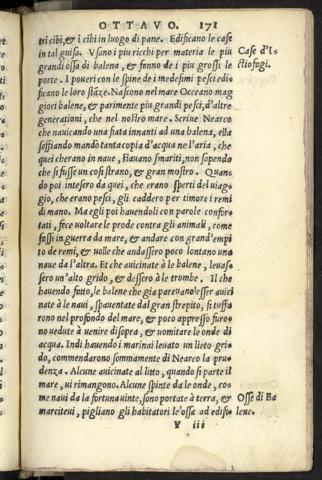 OTTAVO. 171
tri cibi, & i cibi in luogo di pane. Edificano le case
in tal guisa. Vsano i piu ricchi per materia le piu
grandi ossa di balena, & fanno de i piu grossi le
porte. I poueri con le spine de i medesimi pesci edi-
ficano le loro stāze. Nascono nel mare Occeano mag
giori balene, & parimente piu grandi pesci, d'altre
generationi, che nel nostro mare. Scriue Nearco
che nauicando una fiata innanti ad una balena, ella
soffiando mandò tanta copia d'acqua ne l'aria, che
quei cherano in naue, stauano smariti, non sapendo
che si fusse un cosi strano, & gran mostro. Quan-
do poi intesero da quei, che erano sperti del uiag-
gio, che erano pesci, gli caddero per timore i remi
di mano. Ma egli poi hauendoli con parole confor-
tati, fece uoltare le prode contra gli animali, come
fussi in guerra da mare, & andare con grand'empi
to de remi, & uolle che andassero poco lontano una
naue da l'altra. Et che auicinate à le balene, leuas-
sero un'alto grido, & dessero à le trombe. Il che
hauendo fatto, le balene che gia pareuano esser auici
nate à le naui, spauentate dal gran strepito, si tuffa
rono nel profondo del mare, & poco appresso furo-
no uedute à uenire disopra, & uomitare le onde di
acqua. Indi hauendo i marinai leuato un lieto gri-
do, commendarono sommamente di Nearco la pru-
denza. Alcune auicinate al litto, quando si parte il
mare, ui rimangono. Alcune spinte da le onde, co-
me naui da la fortuna uinte, sono portate à terra, &
marcitеui, pigliano gli habitatori le ossa ad edifi-
Y iii
Case d'I-
ctiofagi.
Osse di Ba
lene.